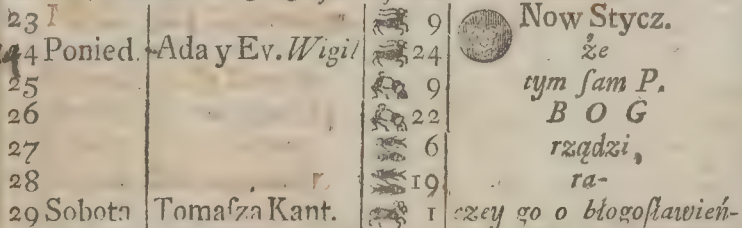 23 9 Now Stycz.
24 Ponied. Ada y Ev. Wigil 24 że
25 9 tym ſam P.
26 22 B O G
27 6 rządzi,
28 19 ra-
29 Sobota Tomaſza Kant. 1 czey go o błogoſławień-